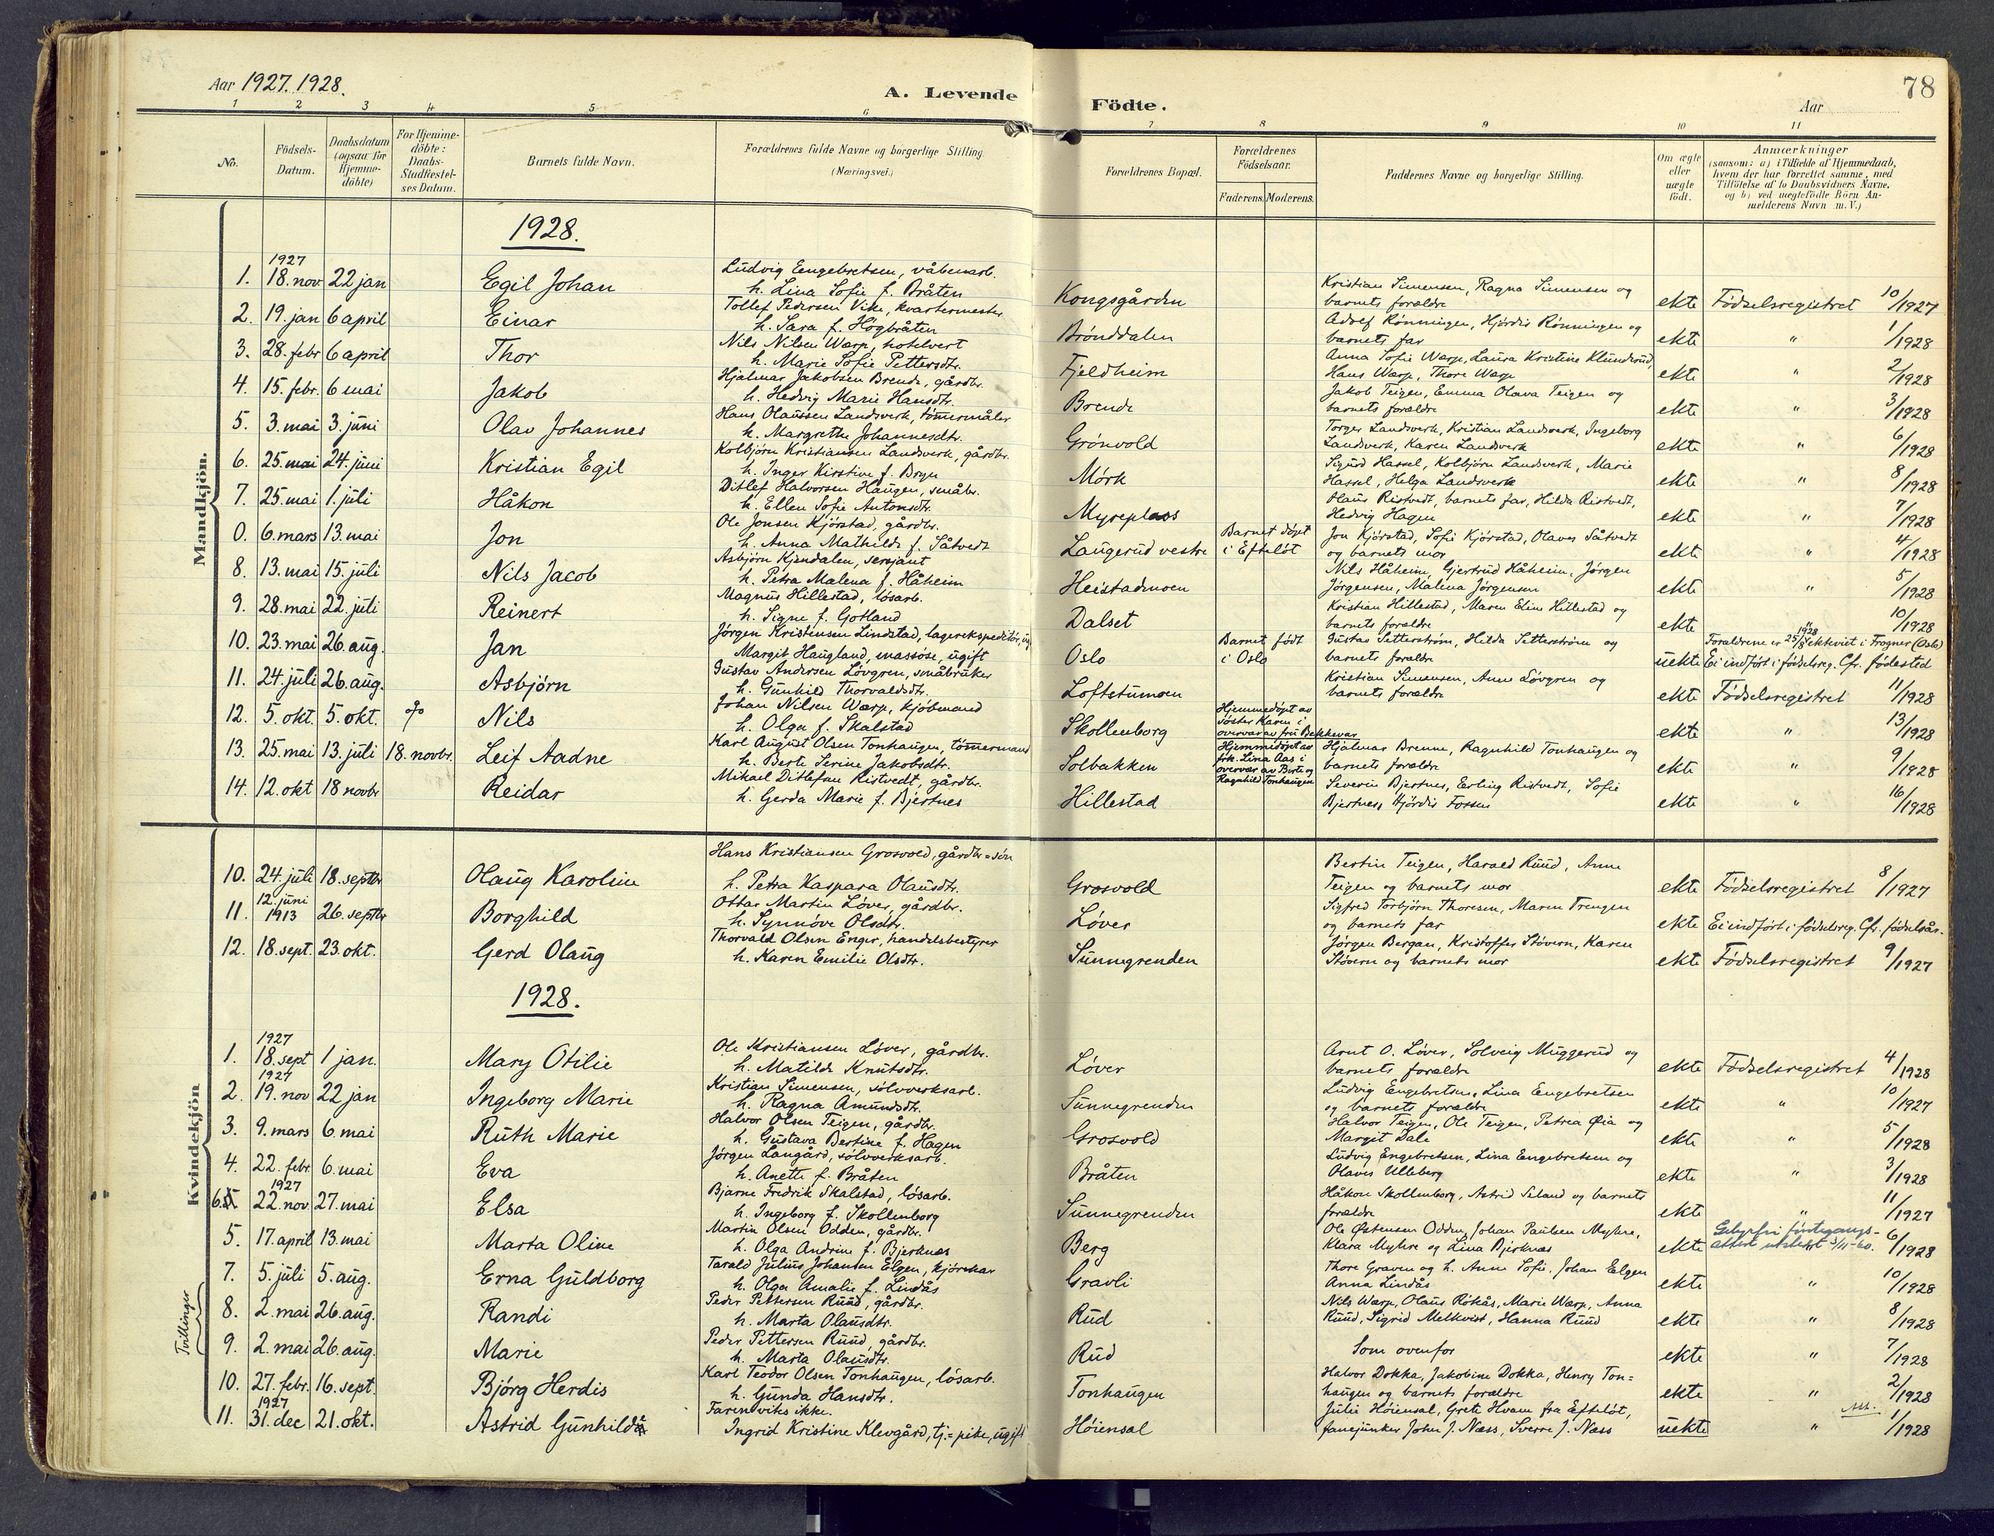 78
Aar 1927. 1928.
A. Levende Födte.
Aar
1 2 3 4 5 6 7 8 9 10 11
No.
Födsels-Datum.
Daabsdatum (ogsaa for Hjemmedöbte)
For Hjemmedöbte: Daabs-Stadfæstelses Datum.
Barnets fulde Navn.
Forældrenes fulde Navne og borgerlige Stilling. (Næringsvei.)
Forældrenes Bopæl.
Forældrenes Födselsaar.
Faderens. Moderens.
Faddernes Navne og borgerlige Stilling.
Om ægte eller uægte födt.
Anmærkninger (saasom: a) i Tilfælde af Hjemmedaab, hvem der har forrettet samme, med Tilföielse af to Daabsvidners Navne, og b) ved uægtefödte Börn Anmelderens Navn m. V.)
Mandkjön.
1928.
1. 1927 18. nov 22 jan Egil Johan Ludvig Engebretsen, våbenarb. h. Lina Sofie f. Bråten Kongsgården Kristian Simensen, Ragna Simensen og barnets forældre ekte Födselsregistret 10/1927
2. 19. jan 6 april Einar Tollef Pedersen Vike, kvartermester h. Sara f. Högbråten Brönddalen Adolf Rønningen, Hjördis Rønningen og barnets far ekte " 1/1928
3. 28. febr 6 april Thor Nils Nilsen Wærp, h. Marie Sofie Pettersdtr. Fjeldheim Anna Sofie Wærp, Laura Kristine Klundsrud, Hans Wærp, Thore Wærp ekte " 2/1928
4. 15. febr. 6 mai Jakob Hjalmar Jakobsen Brende, gårdbr. h. Hedvig Marie Hansdtr. Brende Jakob Teigen, Emma Olava Teigen og barnets forældre ekte " 3/1928
5. 3. mai 3. juni Olav Johannes Hans Olaussen Landsverk, tömmermåler h. Margrethe Johannesdtr. Grönvold Torger Landsverk, Kristian Landsverk, Ingeborg Landsverk, Karen Landsverk ekte " 6/1928
6. 25. mai 24. juni Kristian Egil Kolbjörn Kristiansen Landsverk, gårdbr. h. Inger Kirstine f. Bryn Mörk Sigurd Hassel, Kolbjörn Landsverk, Marie Hassel, Helga Landsverk ekte " 8/1928
7. 25. mai 1. juli Håkon Ditlef Halvorsen Haugen, småbr. h. Ellen Sofie Antonsdtr. Myreplass Olaus Ristvedt, barnets far, Hilda Ristvedt, Hedvig Hagen ekte " 7/1928
0. 6. mars 13. mai Jon Ole Jonsen Kjörstad, gårdbr. h. Anna Mathilde f. Såtvedt Laugerud vestre Barnet döpt i Efteløt Jon Kjörstad, Sofie Kjörstad, Olaves Såtvedt og barnets mor ekte " 4/1928
8. 13. mai 15. juli Nils Jacob Asbjörn Kjendalen, sersjant h. Petra Malena f. Håheim Heistadmoen Nils Håheim, Gjertrud Håheim, Jörgen Jörgensen, Malena Jörgensen ekte " 5/1928
9. 28. mai 22. juli Reinert Magnus Hillestad, lösarb. h. Signe f. Gotland Dalset Kristian Hillestad, Maren Elise Hillestad og barnets forældre ekte " 10/1928
10. 23. mai 26. aug. Jan Jörgen Kristensen Lindstad, lagerekspeditör, ug Margit Haugland, massöse, ugift Oslo Barnet födt i Oslo Gustav Setterström, Hilda Setterström og barnets forældre uekte Forældrene er 25/8 1928 ekteviet i Frogner (Oslo) Ei indfört i födselsreg. Cfr. födested
11. 24. juli 26. aug. Asbjörn Gustav Andersen Lövgren, småbruker h. Gunhild Thorvaldsdtr. Loftstumoen Kristian Simensen, Anne Lövgren og barnets forældre ekte Födselsregistret 11/1928
12. 5. okt. 5. okt. Nils Johan Nilsen Wærp, kjöbmand h. Olga f. Skalstad Skollenborg Hjemmedöpt av söster Karen i overvær av fru Bekkevar ekte " 13/1928
13. 25. mai 13. juli 18. novbr. Leif Aadne Karl August Olsen Tonhaugen, tömermand h. Berte Serine Jakobsdtr. Solbakken Hjemmedöpt av frk. Lina Aas i overvær av Berte og Ragnhild Tonhaugen Hjalmar Brenne, Ragnhild Tonhaugen og barnets forældre ekte " 9/1928
14. 12. okt 18 novbr Reidar Mikael Ditlefsen Ristvedt, gårdbr. h. Gerda Marie f. Bjertnes Hillestad Severin Bjertnes, Erling Ristvedt, Sofie Bjertnes, Hjördis Fossen ekte " 16/1928
Kvindekjön
10. 24. juli 18. septbr Olaug Karoline Hans Kristiansen Grosvold, gårdbr=sön h. Petra Kaspara Olausdtr. Grosvold Bertin Teigen, Harald Ruud, Anne Teigen og barnets mor ekte Födselsregistret 8/1927
11. 12. juni 1913 26. septbr Borghild Ottar Martin Löver, gårdbr. h. Synnöve Olsdtr. Löver Sigfred Torbjörn Thoresen, Maren Trengen og barnets far ekte Ei indfört i födselsreg. Cfr. födselsår.
12. 18. sept. 23. okt. Gerd Olaug Thorvald Olsen Enger, handelsbestyrer h. Karen Emilie Olsdtr. Sunnegrenden Jörgen Bergan, Kristoffer Stövern, Karen Stövern og barnets mor ekte Födselsregistret 9/1927
1928.
1. 1927 18. sept 1 jan. Mary Otilie Ole Kristiansen Löver, gårdbr. h. Matilde Knutsdtr. Löver Arnt O. Löver, Solveig Muggerud og barnets forældre ekte Födselsregistret 4/1928
2. 1927 19. nov 22 jan Ingeborg Marie Kristian Simensen, sölvverksarb. h. Ragna Amundsdtr. Sunnegrenden Ludvig Engebretsen, Lina Engebretsen og barnets forældre ekte " 10/1927
3. 9. mars 6. mai Ruth Marie Halvor Olsen Teigen, gårdbr. h. Gustava Bertine f. Hagen Grosvold Halvor Teigen, Ole Teigen, Petrea Øia og Margit Dale ekte " 5/1928
4. 22. febr. 6. mai Eva Jörgen Langård, sölvverksarb. h. Anette f. Bråten Bråten Ludvig Engebretsen, Lina Engebretsen og Olaves Ulleberg ekte " 3/1928
6. 1927 22. nov. 27. mai Elsa Bjarne Fredrik Skalstad, lösarb. h. Ingeborg f. Skollenborg Sunnegrenden Håkon Skollenborg, Astrid Seland og barnets forældre ekte " 11/1927
5. 17. april 13. mai Marta Oline Martin Olsen Odden, gårdbr. h. Olga Andrine f. Bjerknes Berg Ole Østensen Odden, Johan Paulsen Myhre, Klara Myhre og Lina Bjerknæs ekte utstedt 3/11-60. 6/1928
7. 5. juli 5. aug. Erna Guldborg Tarald Julius Johansen Elgen, kjörekar h. Olga Amalie f. Lindås Gravli Thore Graven og h. Anne Sofie, Johan Elgen Anna Lindås ekte " 10/1928
Tvillinger
8. 2. mai 26. aug. Randi Peder Pettersen Ruud, gårdbr. h. Marta Olausdtr. Rud Nils Wærp, Olaus Rökås, Marie Wærp, Anna Ruud, Sigrid Melkvist, Hanna Ruud ekte " 8/1928
9. 2. mai 26. aug. Marie Peder Pettersen Ruud, gårdbr. h. Marta Olausdtr. Rud Som ovenfor ekte " 7/1928
10. 27. febr. 16. sept. Björg Herdis Karl Teodor Olsen Tonhaugen, lösarb. h. Gunda Hansdtr. Tonhaugen Halvor Dokka, Jakobine Dokka, Henry Ton=haugen og barnets forældre ekte " 2/1928
11. 1927 31. dec 21. okt. Astrid Gunhild Faren viks ikke. Ingrid Kristine Klevgård, tj.=pike, ugift Höiensal Julie Höiensal, Grete Hvam fra Efteløt, fanejunker John J. Næss, Sverre J. Næss uekte " 1/1928